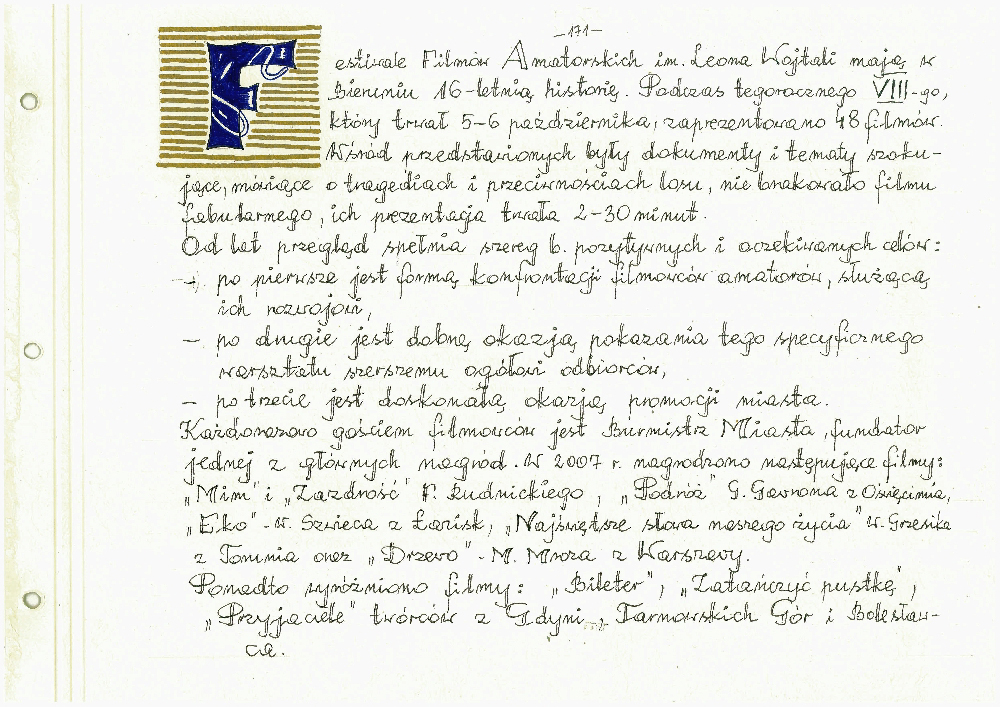 -171-
Festiwale Filmów Amatorskich im. Leona Wojtali mają w
Bieruniu 16-letnią historię. Podczas tegorocznego VIII-go,
który trwał 5-6 października, zaprezentowano 48 filmów.
Wśród przedstawionych były dokumenty i tematy szoku-
jące, mówiące o tragediach i przeciwnościach losu, nie brakowało filmu
fabularnego, ich prezentacja trwała 2-30 minut.
Od lat przegląd spełnia szereg b. pozytywnych i oczekiwanych celów:
- po pierwsze jest formą konfrontacji filmowców amatorów, służącą
ich rozwojowi,
- po drugie jest dobrą okazją pokazania tego specyficznego
warsztatu szerszemu ogółowi odbiorców,
- po trzecie jest doskonałą okazją promocji miasta.
Każdorazowo gościem filmowców jest Burmistrz Miasta, fundator
jednej z głównych nagród. W 2007 r. nagrodzono następujące filmy:
„Mim" i „Zazdrość" F. Rudnickiego, „Podróż" G. Gawrona z Oświęcimia,
„Eko" - W. Szwieca z Łazisk, „Najświętsze słowa naszego życia" W. Grzesika
z Torunia oraz „Drzewo" - M. Mroza z Warszawy.
Ponadto wyróżniono filmy: „Bileter", „Zatańczyć pustkę",
„Przyjaciele" twórców z Gdyni, Tarnowskich Gór i Bolesław-
ca.